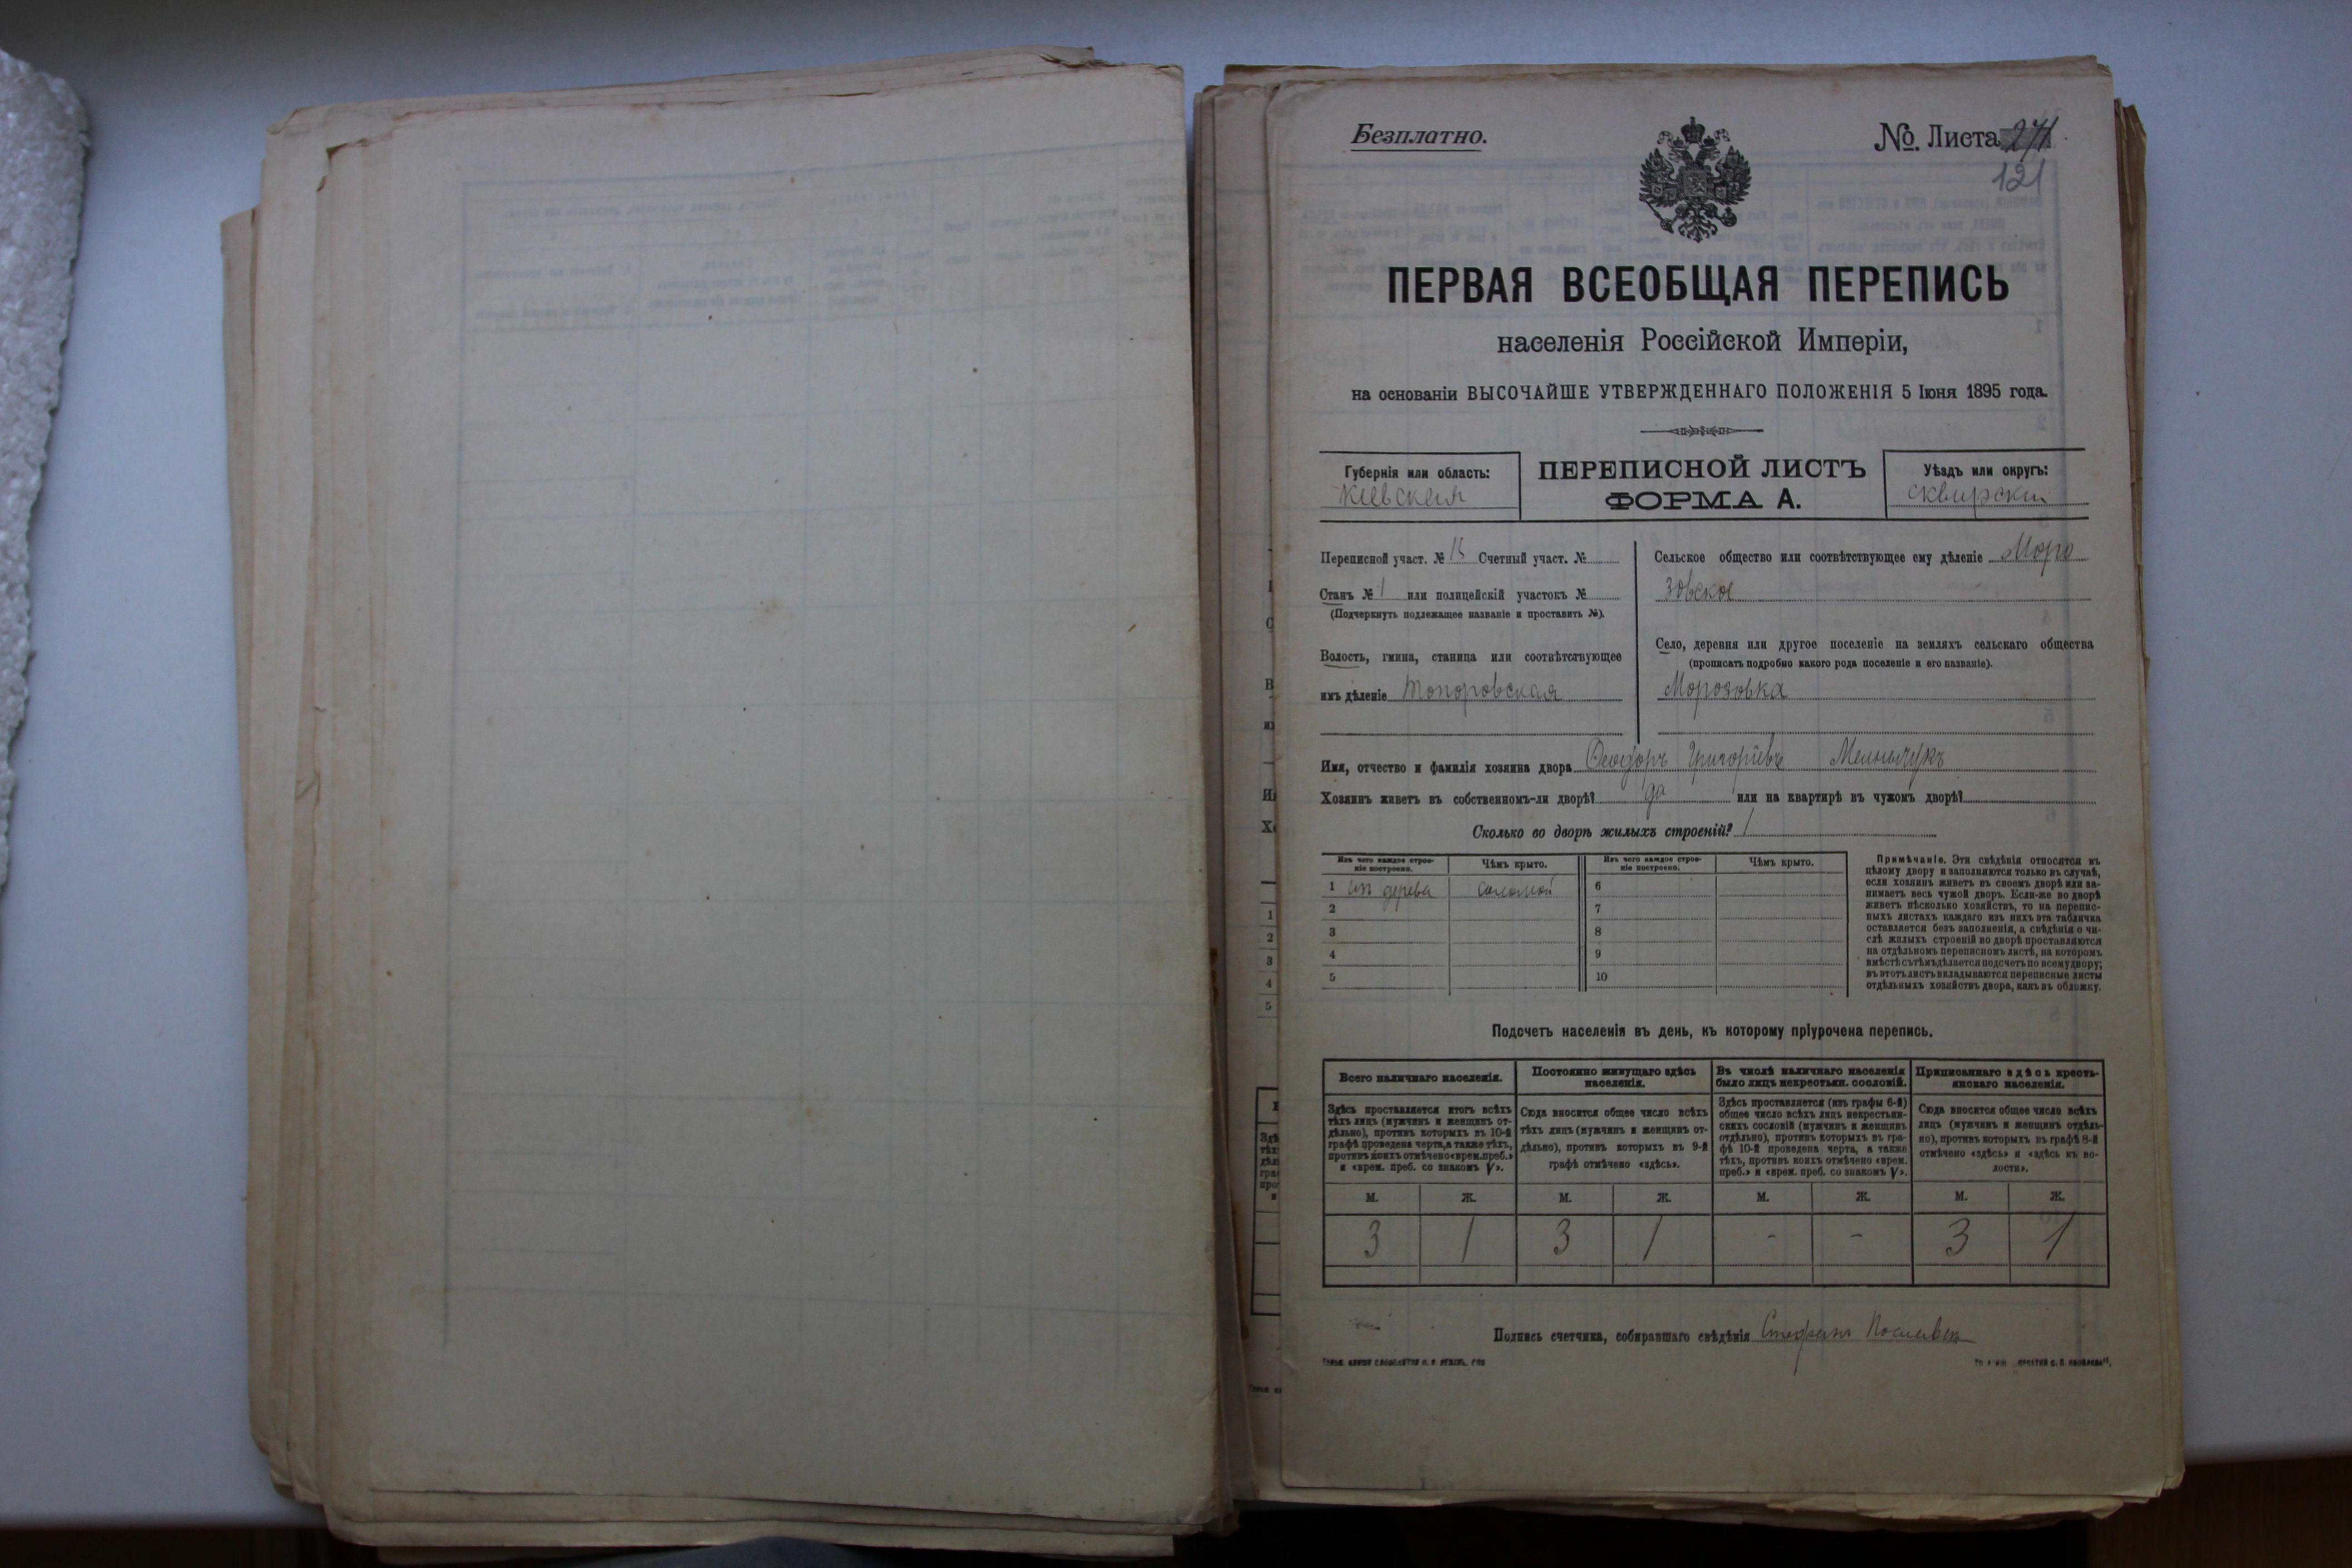 Безплатно.
№ Листа 271
121
ПЕРВАЯ ВСЕОБЩАЯ ПЕРЕПИСЬ
населенія Россійской Имперіи,
на основаніи ВЫСОЧАЙШЕ УТВЕРЖДЕННАГО ПОЛОЖЕНІЯ 5 Іюня 1895 года.
Губернія или область:
Кіевская
ПЕРЕПИСНОЙ ЛИСТЪ
ФОРМА А.
Уѣздъ или округъ:
сквирскій
Переписной участ. № Счетный участ. №
Станъ № 1 или полицейскій участокъ №
(Подчеркнуть подлежащее названіе и проставить №).
Волость, гмина, станица или соотвѣтствующее
имъ дѣленіе Топоровская
Сельское общество или соотвѣтствующее ему дѣленіе Моро
зовское
Село, деревня или другое поселеніе на земляхъ сельскаго общества
(прописать подробно какого рода поселеніе и его названіе).
Морозовка
Имя, отчество и фамилія хозяина двора Феодоръ Григоріевъ Мельничукъ
Хозяинъ живетъ въ собственномъ-ли дворѣ? да или на квартирѣ въ чужомъ дворѣ?
Сколько во дворѣ жилыхъ строеній? 1
Изъ чего каждое строе-
ніе построено.
Чѣмъ крыто.
Изъ чего каждое строе-
ніе построено.
Чѣмъ крыто.
1 изъ дерева соломой 6
2 7
3 8
4 9
5 10
Примѣчаніе. Эти свѣдѣнія относятся къ
цѣлому двору и заполняются только въ случаѣ,
если хозяинъ живетъ въ своемъ дворѣ или за-
нимаетъ весь чужой дворъ. Если-же во дворѣ
живетъ нѣсколько хозяйствъ, то на перепис-
ныхъ листахъ каждаго изъ нихъ эта табличка
оставляется безъ заполненія, а свѣдѣнія о чи-
слѣ жилыхъ строеній во дворѣ проставляются
на отдѣльномъ переписномъ листѣ, на которомъ
вмѣстѣ съ тѣмъ дѣлается подсчетъ по всему двору;
въ этотъ листъ вкладываются переписные листы
отдѣльныхъ хозяйствъ двора, какъ въ обложку.
Подсчетъ населенія въ день, къ которому пріурочена перепись.
Всего наличнаго населенія.
Постоянно живущаго здѣсь
населенія.
Въ числѣ наличнаго населенія
было лицъ некрестьян. сословій.
Приписаннаго здѣсь кресть-
янскаго населенія.
Здѣсь проставляется итогъ всѣхъ
тѣхъ лицъ (мужчинъ и женщинъ от-
дѣльно), противъ которыхъ въ 10-й
графѣ проведена черта, а также тѣхъ,
противъ коихъ отмѣчено «врем. преб.»
и «врем. преб. со знакомъ V».
Сюда вносится общее число всѣхъ
тѣхъ лицъ (мужчинъ и женщинъ от-
дѣльно), противъ которыхъ въ 9-й
графѣ отмѣчено «здѣсь».
Здѣсь проставляется (изъ графы 6-й)
общее число всѣхъ лицъ некрестьян-
скихъ сословій (мужчинъ и женщинъ
отдѣльно), противъ которыхъ въ гра-
фѣ 10-й проведена черта, а также
тѣхъ, противъ коихъ отмѣчено «врем.
преб.» и «врем. преб. со знакомъ V».
Сюда вносится общее число всѣхъ
лицъ (мужчинъ и женщинъ отдѣль-
но), противъ которыхъ въ графѣ 8-й
отмѣчено «здѣсь» и «здѣсь къ во-
лости».
М. Ж. М. Ж. М. Ж. М. Ж.
3 1 3 1 - - 3 1
Подпись счетчика, собиравшаго свѣдѣнія Стефанъ